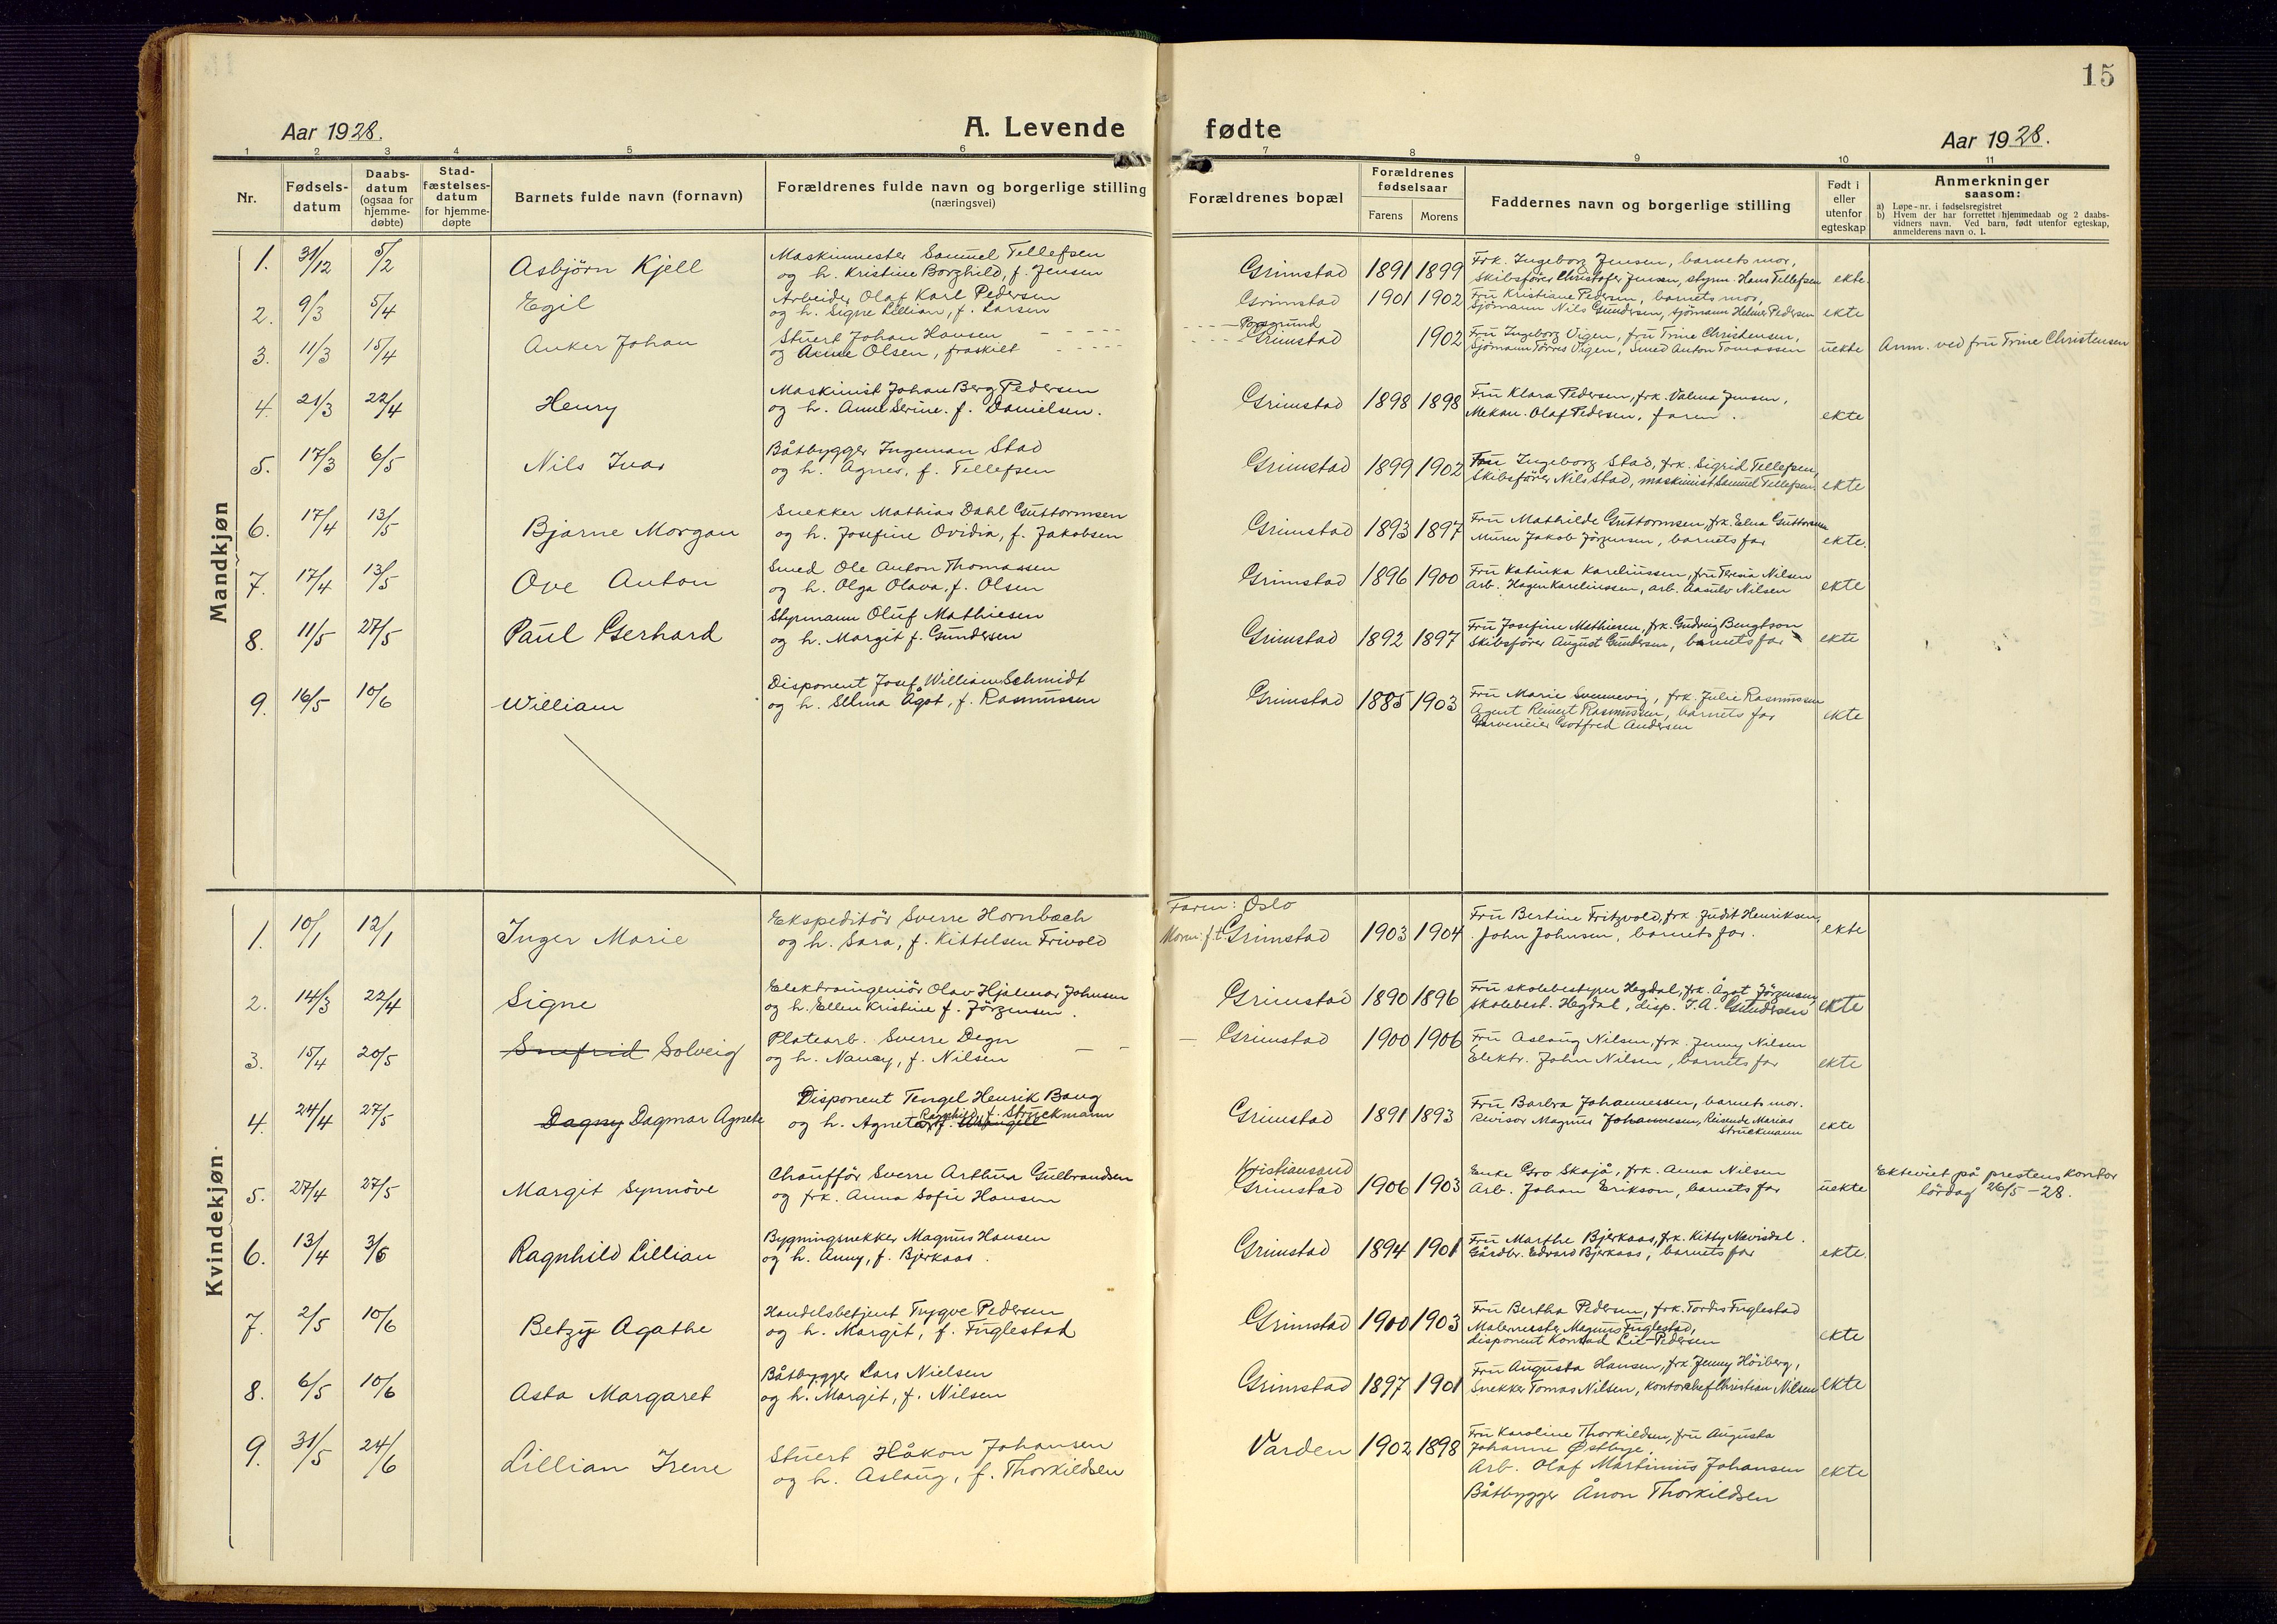 15
Aar 1928.
A. Levende fødte
Aar 1928.
1 2 3 4 5 6 7 8 9 10 11
Nr.
Fødsels-
datum
Daabs-
datum
(ogsaa for
hjemme-
døbte)
Stad-
fæstelses-
datum
for hjemme-
døpte
Barnets fulde navn (fornavn)
Forældrenes fulde navn og borgerlige stilling
(næringsvei)
Forældrenes bopæl
Forældrenes
fødselsaar
Farens Morens
Faddernes navn og borgerlige stilling
Født i
eller
utenfor
egteskap
Anmerkninger
saasom:
a) Løpe-nr. i fødselsregistret
b) Hvem der har forrettet hjemmedaab og 2 daabs-
vidners navn. Ved barn, født utenfor egteskap,
anmelderens navn o. l.
Mandkjøn
1. 31/12 5/2 Asbjörn Kjell
Maskinmester Samuel Tellefsen
og h. Kristine Borghild, f. Jensen
Grimstad 1891 1899
Frk. Ingeborg Jensen, barnets mor,
Skibsförer Christofer Jensen, styrm. Hans Tellefsen ekte.
2. 9/3 5/4 Egil
Arbeider Olaf Karl Pedersen
og h. Signe Lillian, f. Larsen
Grimstad 1901 1902
Fru Kristiane Pedersen, barnets mor,
Sjömann Nils Gundersen, sjömann Helmer Pedersen ekte
3. 11/3 15/4 Anker Johan
Stuert Johan Hansen - - - - -
og Anne Olsen, fraskilt - - - - -
- - - - Porsgrund
- - - - Grimstad 1902
Fru Ingeborg Vigen, fru Trine Christensen,
Sjömann Törres Vigen, Smed Anton Tomassen uekte Anm. ved fru Trine Christensen
4. 21/3 22/4 Henry
Maskinist Johan Berg Pedersen
og h. Anne Serine. f. Danielsen.
Grimstad 1898 1898
Fru Klara Pedersen, frk. Valma Jensen,
Mekan. Olaf Pedersen, faren. ekte
5. 17/3 6/5 Nils Ivar
Båtbygger Ingeman Stad
og h. Agnes, f. Tellefsen
Grimstad 1899 1902
Fru Ingeborg Stad, frk. Sigrid Tellefsen,
Skibsförer Nils Stad, maskinist Samuel Tellefsen. ekte
6. 17/4 13/5 Bjarne Morgan
Snekker Mathias Dahl Guttormsen
og h. Josefine Ovidia, f. Jakobsen
Grimstad 1893 1897
Fru Mathilde Guttormsen, frk. Elna Guttormsen
Murer Jakob Jörgensen, barnets far ekte.
7. 17/4 13/5 Ove Anton
Smed Ole Anton Thomassen
og h. Olga Olava, f. Olsen
Grimstad 1896 1900
Fru Katinka Kareliussen, fru Teresia Nilsen
Arb. Hagen Kareliussen, arb. Aasulv Nilsen ekte
8. 11/5 27/5 Paul Gerhard
Styrmann Oluf Mathiesen
og h. Margit f. Gundersen
Grimstad 1892 1897
Fru Josefine Mathiesen, frk. Gudveig Bengtson
Skibsförer August Gundersen, barnets far ekte
9. 16/5 10/6 William
Disponent Josef William Schmidt
og h. Selma Ågot, f. Rasmussen
Grimstad 1885 1903
Fru Marie Svennevig, frk. Julie Rasmussen
Agent Reinert Rasmussen, barnets far
Garverieier Gotfred Andersen ekte
Kvindekjøn.
1. 10/1 12/1 Inger Marie
Ekspeditör Sverre Hornbæch
og h. Sara, f. Kittelsen Frivold
Faren: Oslo
Moren: f.t Grimstad 1903 1904
Fru Bertine Fritzvold, frk. Judit Henriksen,
John Johnsen, barnets far. ekte
2. 14/3 22/4 Signe
Elektroingeniör Olav Hjalmar Johnsen
og h. Ellen Kristine f. Jörgensen.
Grimstad 1890 1896
Fru skolebestyrer Hegdal, frk. Ågot Jörgensen,
skolebest. Hegdal, disp. J.A. Gundersen ekte
3. 15/4 20/5 Snefrid Solveig
Platearb. Sverre Degn
og h. Nancy, f. Nilsen - -
- Grimstad 1900 1906
Fru Aslaug Nilsen, frk. Jenny Nilsen
Elektr. John Nilsen, barnets far ekte
4. 24/4 27/5 Dagny Dagmar Agnete
Disponent Tengel Henrik Bang
og h. Agneta Ragnhild, f. Struckmann
Grimstad 1891 1893
Fru Barbra Johannessen, barnets mor.
Revisor Magnus Johannesen, Reisende Marius
Struckmann ekte
5. 27/4 27/5 Margit Synnöve
Chaufför Sverre Arthur Gulbrandsen
og frk. Anna Sofie Hansen
Kristiansand
Grimstad 1906 1903
Enke Gro Skajå, frk. Anna Nilsen
Arb. Johan Erikson, barnets far uekte
Ekteviet på prestens kontor
lördag 26/5-28.
6. 13/4 3/6 Ragnhild Lillian
Bygningsnekker Magnus Hansen
og h. Anny, f. Bjerkaas.
Grimstad 1894 1901
Fru Marthe Bjerkaas, frk. Kitty Mevisdal.
Gårdbr. Edvard Bjerkaas, barnets far ekte.
7. 2/5 10/6 Betzy Agathe
Handelsbetjent Trygve Pedersen
og h. Margit, f. Fuglestad
Grimstad 1900 1903
Fru Bertha Pedersen, frk. Tordis Fuglestad
Malermester Magnus Fuglestad,
disponent Konrad Lie-Pedersen ekte
8. 6/5 10/6 Asta Margaret
Båtbygger Lars Nielsen
og h. Margit, f. Nilsen
Grimstad 1897 1901
Fru Augusta Hansen, frk. Jenny Höiberg,
Snekker Tomas Nilsen, kontorchef Christian Nilsen ekte
9. 31/5 24/6 Lillian Irene
Stuert Håkon Johansen
og h. Aslaug, f. Thorkildsen
Varden 1902 1898
Fru Karoline Thorkildsen, fru Augusta
Johanne Östbye.
Arb. Olaf Martinius Johansen ekte
Båtbygger Ånon Thorkildsen